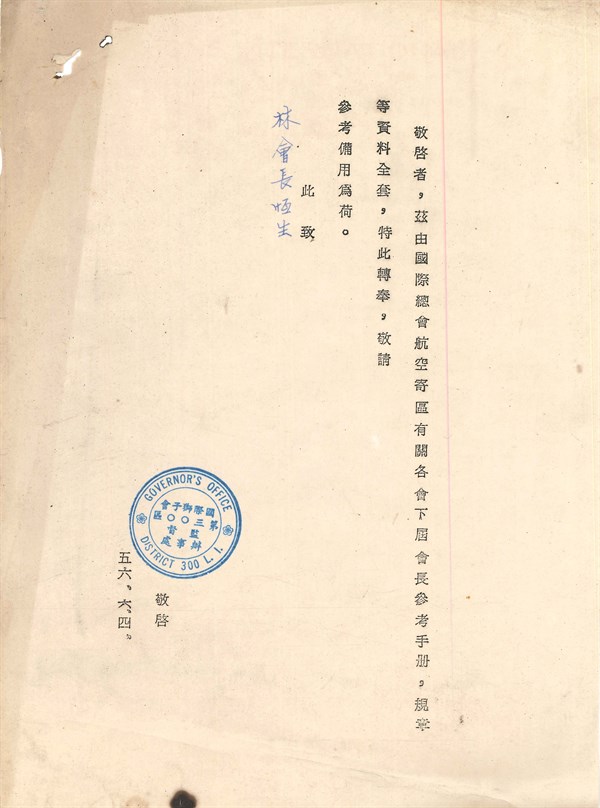 敬啓者，茲由國際總會航空寄區有關各會下屆會長參考手册，規章
等資料全套，特此轉奉，敬請
參考備用爲荷。
此致
林會長恒生
GOVERNOR'S OFFICE
國際獅子會
第三〇〇區
監督
辦事處
DISTRICT 300 L. I.
敬啓
五六，六，四，